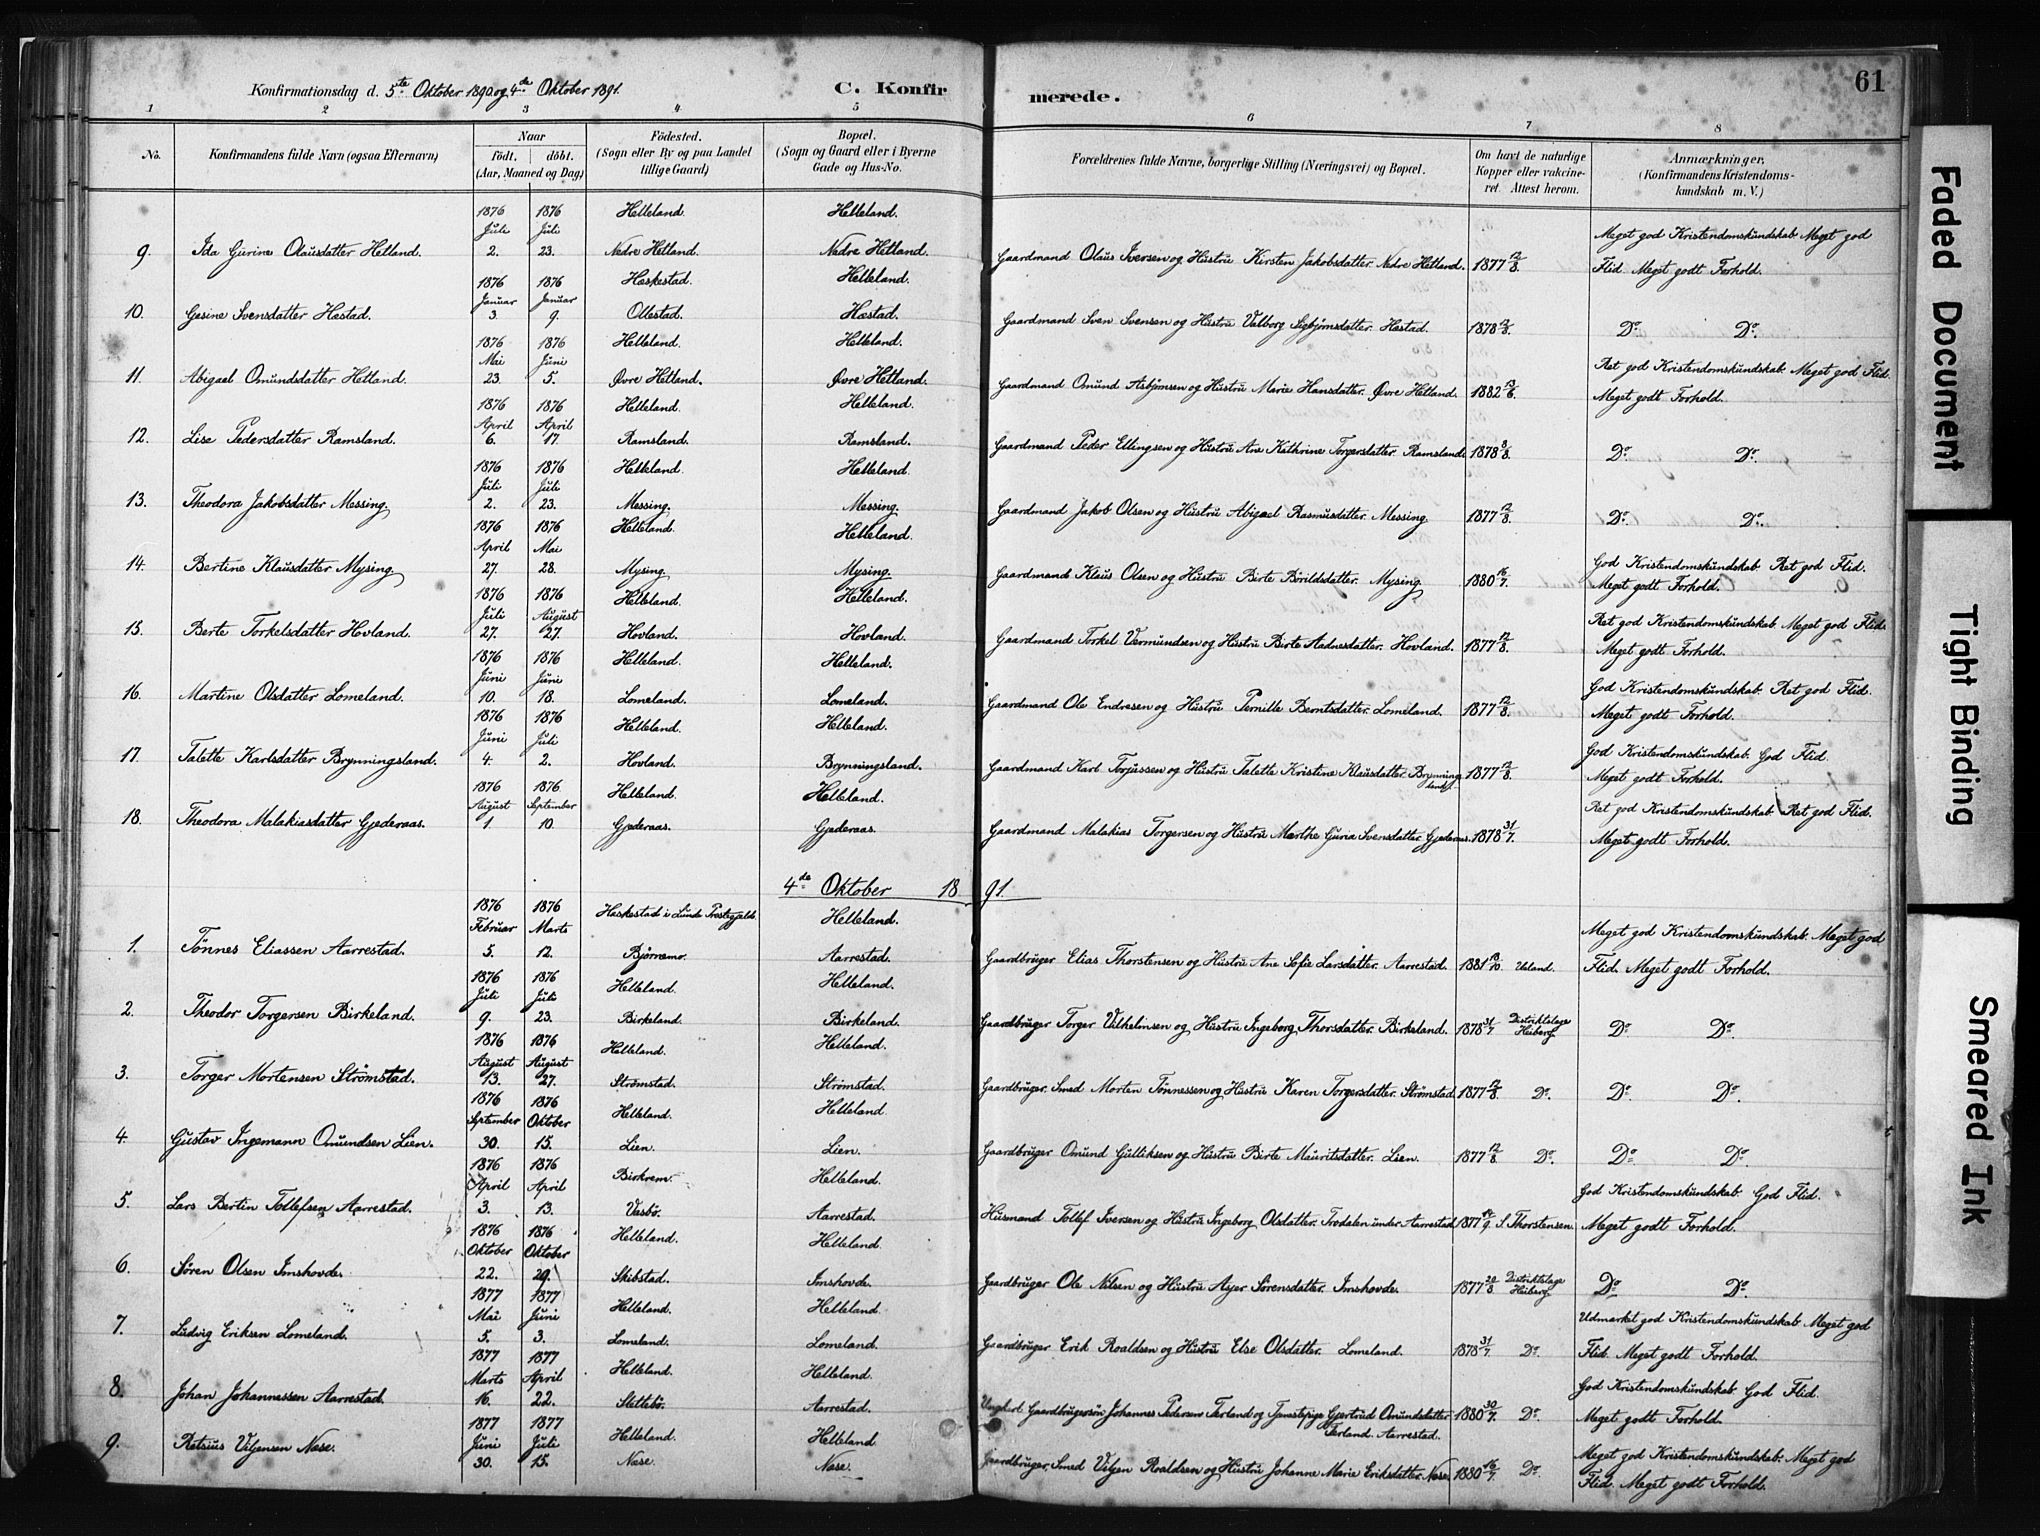 Konfirmationsdag d. 5te Oktober 1890 og 4de Oktober 1891. C. Konfirmerede. 61
1 2 3 4 5 6 7 8
No. Konfirmandens fulde Navn (ogsaa Efternavn) Naar födt. döbt. (Aar, Maaned og Dag) Födested. (Sogn eller By og paa Landet tillige Gaard) Bopæl. (Sogn og Gaard eller i Byerne Gade og Hus-No. Forældrenes fulde Navne, borgerlige Stilling (Næringsvei) og Bopæl. Om havt de naturlige Kopper eller vakcineret. Attest herom. Anmærkninger. (Konfirmandens Kristendomskundskab m. V.)
1876 1876 Helleland. Helleland.
Juli Juli Meget god Kristendomskundskab. Meget god
9. Ida Gurine Olausdatter Hetland. 2. 23. Nedre Hetland. Nedre Hetland. Gaardmand Olaus Iversen og Hustru Kirsten Jakobsdatter. Nedre Hetland. 1877 12/8. Flid. Meget godt Forhold.
1876 1876 Heskestad. Helleland.
Januar Januar
10. Gesine Svensdatter Hæstad. 3. 9. Ollestad. Hæstad. Gaardmand Sven Svensen og Hustru Valborg Sigbjørnsdatter. Hæstad. 1878 12/8. Do. Do.
1876 1876 Helleland. Helleland.
Mai Juni Ret god Kristendomskundskab. Meget god Flid.
11. Abigael Omundsdatter Hetland. 23. 5. Øvre Hetland. Øvre Hetland. Gaardmand Omund Asbjørnsen og Hustru Marie Hansdatter. Øvre Hetland. 1882 13/6. Meget godt Forhold.
1876 1876 Helleland. Helleland.
April April
12. Lise Pedersdatter Ramsland. 6. 17. Ramsland. Ramsland. Gaardmand Peder Ellingsen og Hustru Ane Kathrine Torgersdatter. Ramsland. 1878 8/8. Do. Do.
1876 1876 Helleland. Helleland.
Juli Juli
13. Theodora Jakobsdatter Messing. 2. 23. Messing. Messing. Gaardmand Jakob Olsen og Hustru Abigael Rasmusdatter. Messing. 1877 12/8. Do. Do.
1876 1876 Helleland. Helleland.
April Mai God Kristendomskundskab. Ret god Flid.
14. Bertine Klausdatter Mysing. 27. 28. Mysing. Mysing. Gaardmand Klaus Olsen og Hustru Birte Børildsdatter. Mysing. 1880 16/7. Meget godt Forhold.
1876 1876 Helleland. Helleland.
Juli August Ret god Kristendomskundskab. Meget god Flid.
15. Berte Torkelsdatter Hovland. 27. 27. Hovland. Hovland. Gaardmand Torkel Vermundsen og Hustru Birte Aadnesdatter. Hovland. 1877 12/8. Meget godt Forhold.
1876 1876 Helleland. Helleland.
Juni Juni God Kristendomskundskab. Ret god Flid.
16. Martine Olsdatter Lomeland. 10. 18. Lomeland. Lomeland. Gaardmand Ole Endresen og Hustru Pernille Berntsdatter. Lomeland. 1877 12/8. Meget godt Forhold.
1876 1876 Helleland. Helleland.
Juni Juli God Kristendomskundskab. God Flid.
17. Talette Karlsdatter Brynningsland. 4. 2. Hovland. Brynningsland. Gaardmand Karl Torjussen og Hustru Talette Kristine Klausdatter. Brynningsland. 1877 12/8. Meget godt Forhold.
1876 1876 Helleland. Helleland.
August September Ret god Kristendomskundskab. Ret god Flid.
18. Theodora Malakiasdatter Gjederaas. 1. 10. Gjederaas. Gjederaas. Gaardmand Malakias Torgersen og Hustru Marthe Guria Svensdatter. Gjederaas. 1878 31/7. Meget godt Forhold.
4de Oktober 1891.
1876 1876 Heskestad i Lunde Prestegjeld. Helleland.
Februar Marts Meget god Kristendomskundskab. Meget god
1. Tønnes Eliassen Aarrestad. 5. 12. Bjørnemo. Aarrestad. Gaardbruger Elias Thorstensen og Hustru Ane Sofie Larsdatter. Aarrestad. 1881 18/10 Ueland. Flid. Meget godt Forhold.
1876 1876 Helleland. Helleland.
Juli Juli
2. Theodor Torgersen Birkeland. 9. 23. Birkeland. Birkeland. Gaardbruger Torger Vilhelmsen og Hustru Ingeborg Thorsdatter. Birkeland. 1878 31/7 Distriktslæge Heiberg Do. Do.
1876 1876 Helleland. Helleland.
August August
3. Torger Mortensen Strømstad. 13. 27. Strømstad. Strømstad. Gaardbruger. Smed Morten Tønnessen og Hustru Karen Torgersdatter. Strømstad. 1877 12/8. Do. Do. Do.
1876 1876 Helleland. Helleland
September Oktober
4. Gustav Ingemann Omundsen Lien. 30. 15. Lien. Lien. Gaardbruger Omund Gulliksen og Hustru Birte Mauritsdatter. Lien. 1877 12/8 Do. Do. Do.
1876 1876 Birkrem. Helleland.
April April God Kristendomskundskab. God Flid.
5. Lars Bertin Tollefsen Aarrestad. 3. 13. Vasbø. Aarrestad. Husmand Tollef Iversen og Hustru Ingeborg Olsdatter. Trodalen under Aarrestad. 1877 14/9. S. Thorstensen. Meget godt Forhold.
1876 1876 Helleland. Helleland.
Oktober Oktober
6. Søren Olsen Imshovde. 22. 29. Skibstad. Imshovde. Gaardbruger Ole Nilsen og Hustru Asjer Sørensdatter. Imshovde. 1877 20/8 Distriktslæge Heiberg Do. Do.
1877 1877 Helleland. Helleland.
Mai Juni Udmærket god Kristendomskundskab. Meget god
7. Ludvig Eriksen Lomeland. 5. 3. Lomeland. Lomeland. Gaardbruger Erik Roaldsen og Hustru Else Olsdatter. Lomeland. 1878 31/7. Do. Flid. Meget godt Forhold.
1877 1877 Helleland. Helleland.
Marts April God Kristendomskundskab. God Flid.
8. Johan Johannessen Aarrestad. 16. 22. Slettebø. Aarrestad. Ungkarl Gaardbrugersøn Johannes Pedersen Terland og Tjenestepige Gjertrud Omundsdatter Terland. Aarrestad. 1880 30/7. Do. Meget godt Forhold.
1877 1877 Helleland. Helleland
Juni Juli Meget god Kristendomskundskab. Meget god
9. Retsius Viljensen Nese. 30. 15. Nese. Nese. Gaardbruger, Smed Viljen Roaldsen og Hustru Johanne Marie Eriksdatter. Nese. 1880 16/7. Do. Flid. Meget godt Forhold.
Faded Document
Tight Binding
Smeared Ink